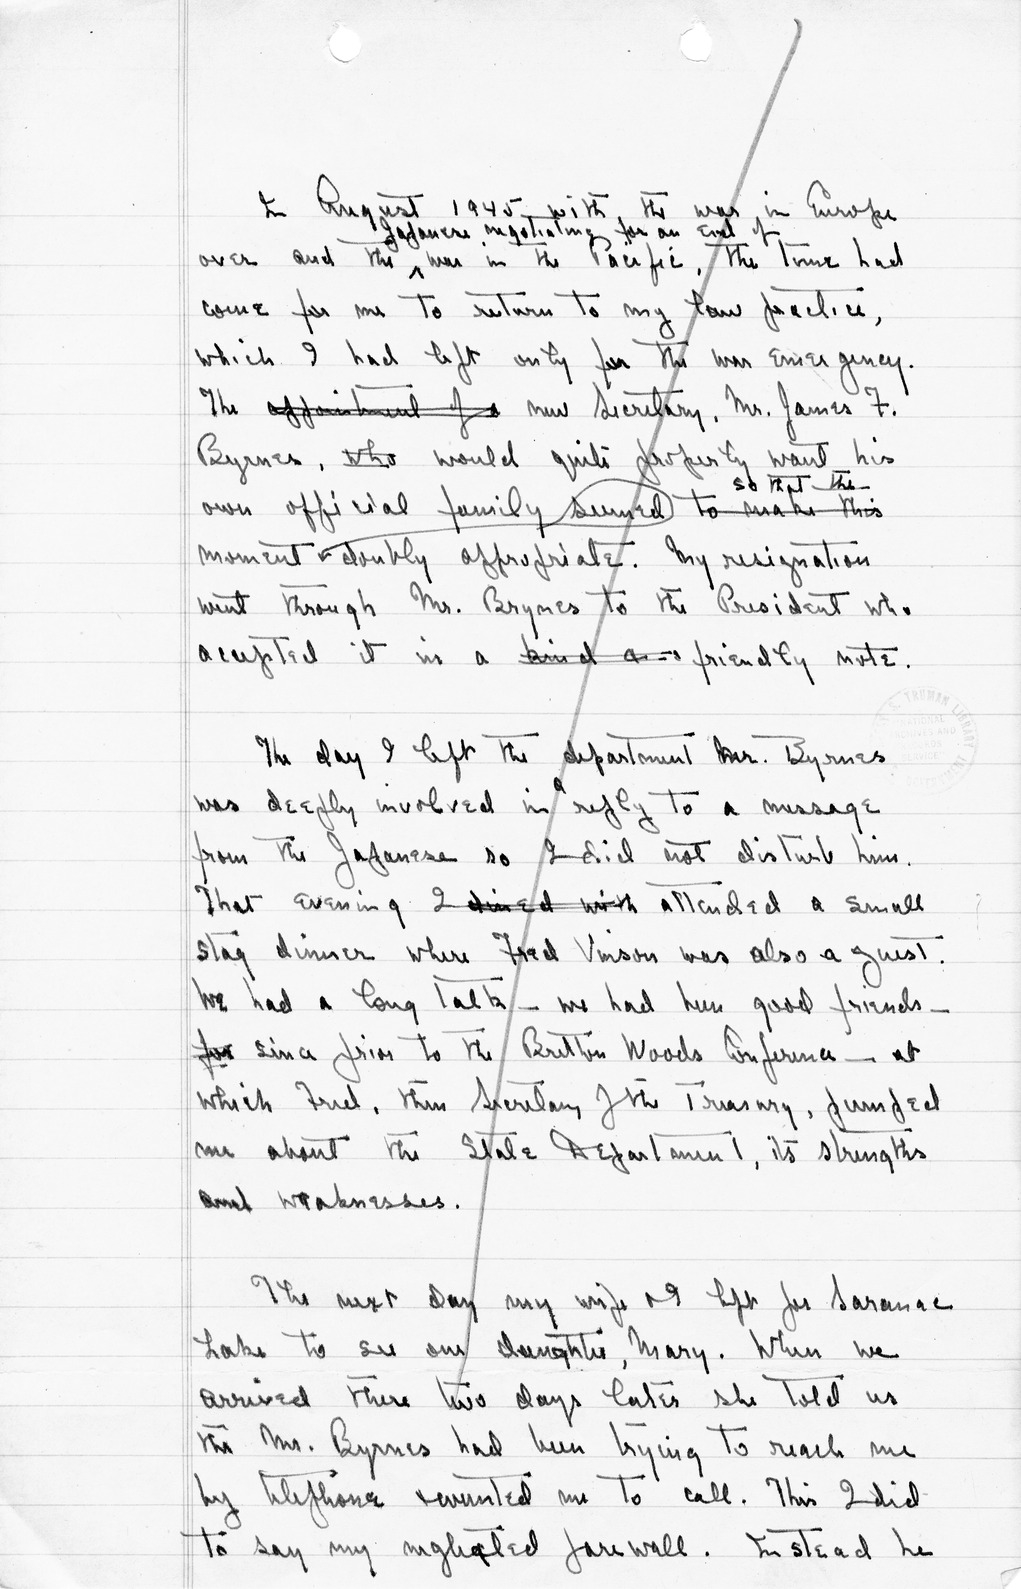 In August 1945 with the war in Europe
Japanese negotiating for an end of
over and the ^ war in the Pacific, the time had
come for me to return to my law practice,
which I had left only for the war emergency.
The appointment of a new Secretary, Mr. James F.
Byrnes, who would quite properly want his
so that the
own official family seemed to make this
moment doubly appropriate. My resignation
went through Mr. Brynes to the President who
accepted it in a kind a friendly note.
The day I left the department Mr. Byrnes
was deeply involved in a reply to a message
from the Japanese so I did not disturb him.
That evening I dined with attended a small
stag dinner where Fred Vinson was also a guest.
We had a long talk – we had been good friends –
for since prior to the Bretton Woods Conference – at
which Fred, then Secretary of the Treasury, pumped
me about the State Department, its strengths
and weaknesses.
The next day my wife & I left for Saranac
Lake to see our daughter, Mary. When we
arrived there two days later she told us
tha Mr. Byrnes had been trying to reach me
by telephone & wanted me to call. This I did
to say my neglected farewell. Instead he
S. TRUMAN LIBRARY
NATIONAL
ARCHIVES AND
RECORDS
SERVICE